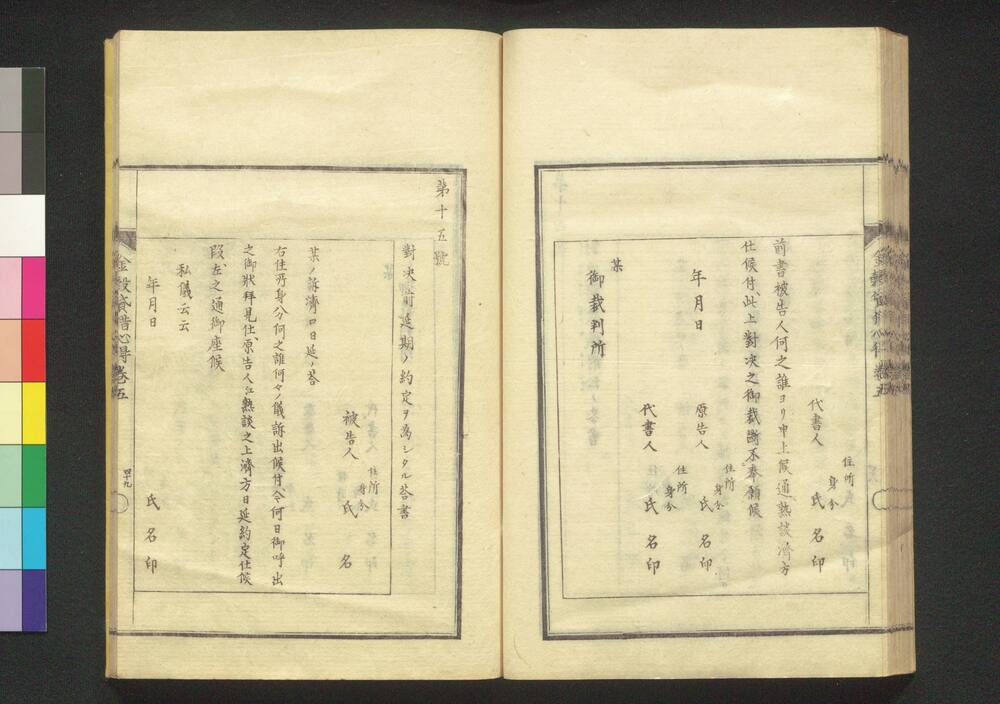 住所
身分
代書人 氏名印
前書被告人何之誰ヨリ申上候通熟談済方
仕候付此上對决之御裁断不奉願候
年月日
住所
身分
原告人 氏名印
住所
身分
代書人 氏名印
某
御裁判所
第十五號
對决前延期ノ約定ヲ為シタル答書
某ノ訴済口日延ノ答
住所
身分
被告人 氏名
右住所身分何之誰何々ノ儀訴出候付今何日御呼出
之御状拜見仕原告人江熟談之上濟方日延約定仕候
段左之通御座候
私儀云云
年月日 氏名印
金穀貸借心得卷五
四十九